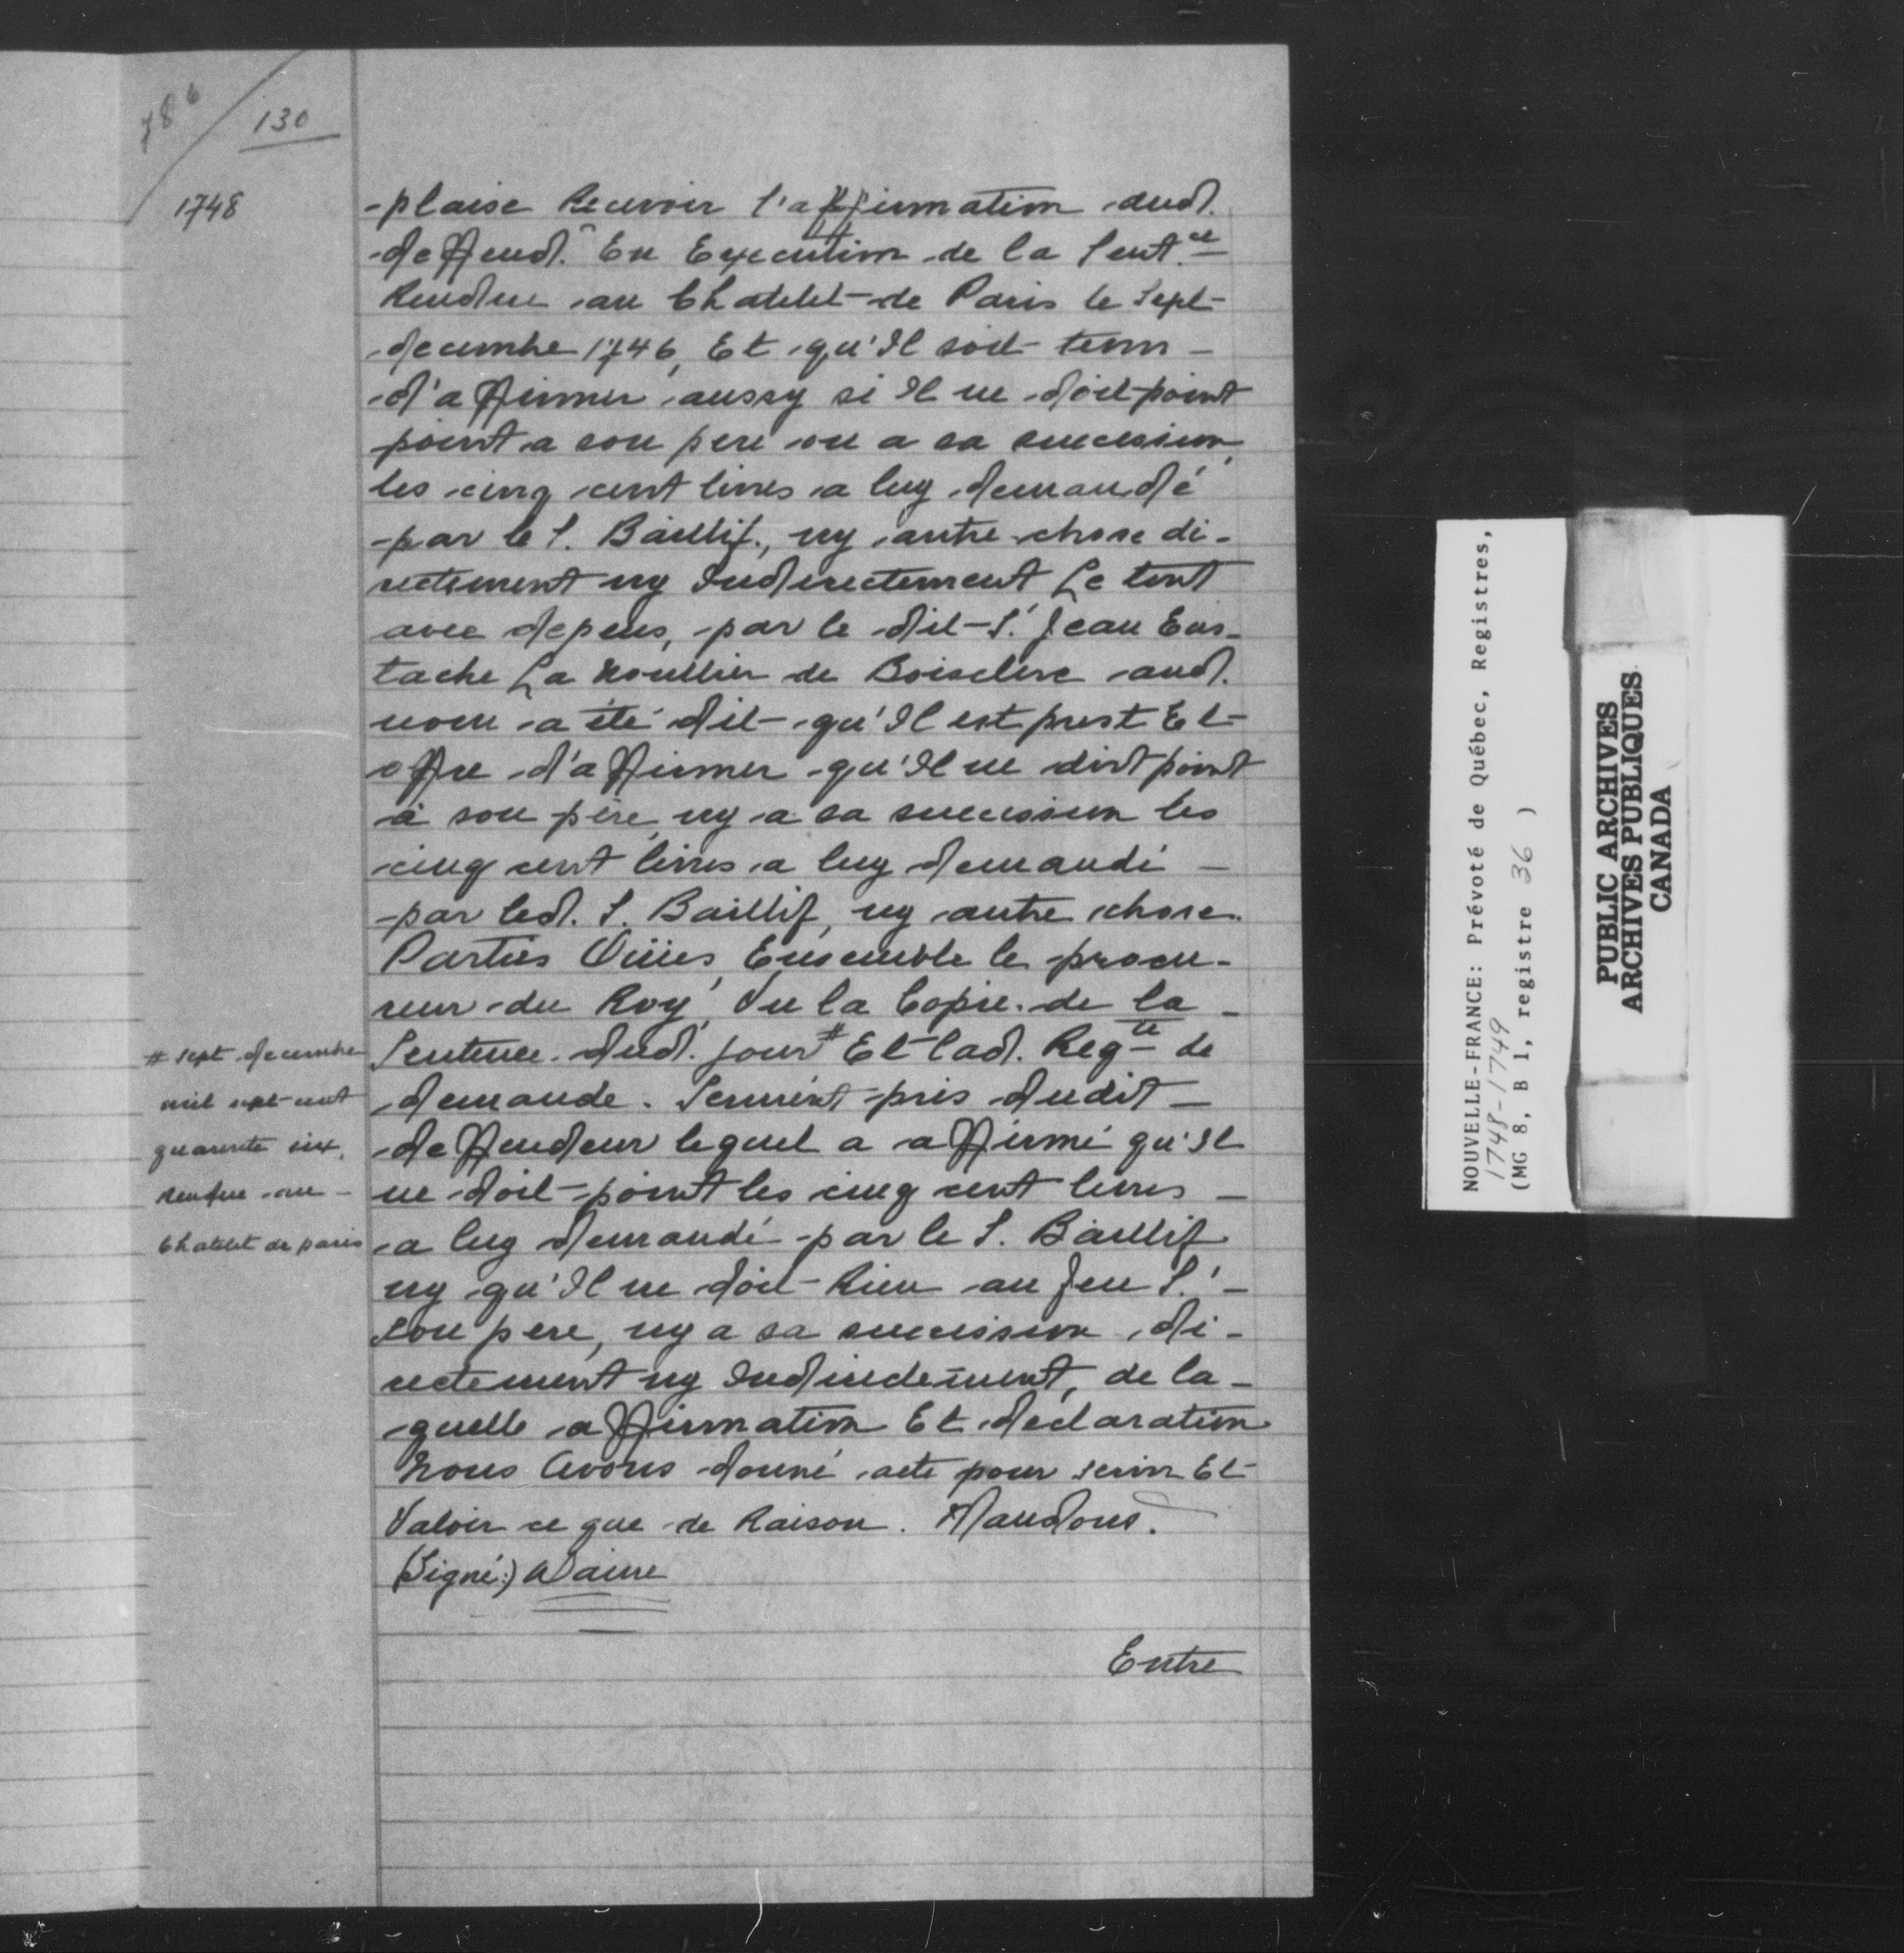 78b
130
1748
plaise Recevoir l'affirmation dud.
deffend.r En Execution de la Sent.ce
Rendue au Chatelet de Paris le Sept
decembre 1746, Et qu'Il soit tenu
d'affirmer aussy si Il ne doit point
point a son pere ou a sa succession,
les cinq cent livres a luy demandé
par le S. Baillif, ny autre chose di-
rectement ny Indirectement Le tout
avec depens, par le dit S.r Jean Eus-
tache La Noullier de Boisclerc aud.
nom a été dit qu'Il est prest Et
offre d'affirmer qu'Il ne doit point
à son père, ny a sa succession les
cinq cent livres a luy demandé
par led. S. Baillif, ny autre chose.
Parties Oüies, Ensemble le procu-
reur du Roy, Vu la Copie de la
Sentence dud. jour # Et lad. Reqte de
demande. Serment pris dudit
deffendeur lequel a affirmé qu'Il
ne doit point les cinq cent livres
a luy demandé par le S. Baillif
ny qu'Il ne doit Rien au feu S.r
son pere, ny a sa succession di-
rectement ny Indirectement, de la-
quelle affirmation Et déclaration
Nous Avons donné acte pour servir Et
Valoir ce que de Raison. Mandons.
(Signé:) Daine
Entre
# sept decembre
mil sept cent
quarente six,
rendue au
Chatelet de paris
NOUVELLE-FRANCE: Prévoté de Québec, Registres,
1748-1749
(MG 8, B 1, registre 36 )
PUBLIC ARCHIVES
ARCHIVES PUBLIQUES
CANADA